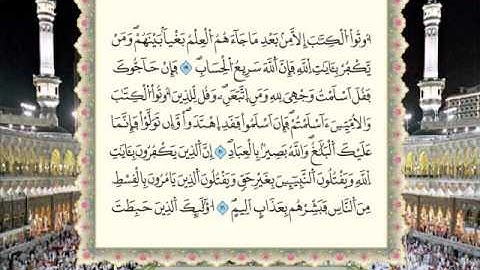 اُوتُوا الْكِتَٰبَ إِلَّا مِنۢ بَعْدِ مَا جَآءَهُمُ الْعِلْمُ بَغْياًۢ بَيْنَهُمْۖ وَمَنْ
يَّكْفُرْ بِـَٔايَٰتِ اِللَّهِ فَإِنَّ اَللَّهَ سَرِيعُ الْحِسَابِۖ ١٩ فَإِنْ حَآجُّوكَ
فَقُلَ اَسْلَمْتُ وَجْهِيَ لِلهِ وَمَنِ اِتَّبَعَنِۦۖ وَقُل لِّلذِينَ أُوتُوا الْكِتَٰبَ
وَالُامِّيِّـۧنَ ءَآسْلَمْتُمْۖ فَإِنَ اَسْلَمُوا فَقَدِ اِهْتَدَوا وَّإِن تَوَلَّوْا فَإِنَّمَا
عَلَيْكَ الْبَلَٰغُۖ وَاللَّهُ بَصِيرٌۢ بِالْعِبَادِۖ ٢٠ إِنَّ الذِينَ يَكْفُرُونَ بِـَٔايَٰتِ
اِللَّهِ وَيَقْتُلُونَ النَّبِيٓـِٕينَ بِغَيْرِ حَقٍّ وَيَقْتُلُونَ الذِينَ يَامُرُونَ بِالْقِسْطِ
مِنَ النَّاسِ فَبَشِّرْهُم بِعَذَابٍ اَلِيمٍۖ ٢١ اُوْلَٰٓئِكَ الذِينَ حَبِطَتَ